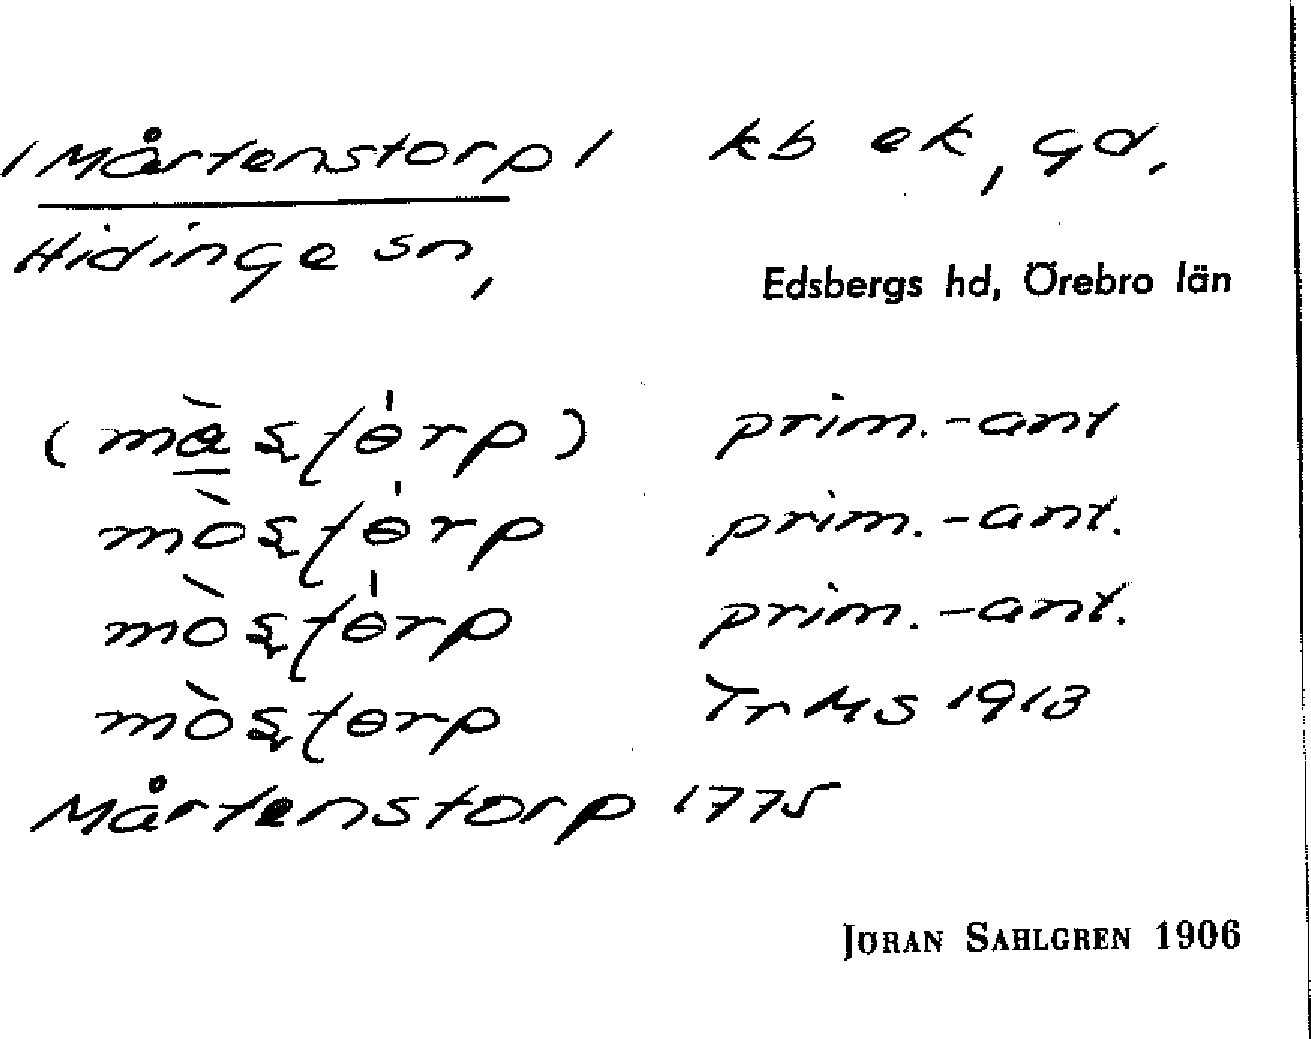 /Mårtenstorp/ kb ek, gd.
Hidinge sn,
Edsbergs hd, Örebro län
(màsƭɵ́rp) prim.-ant
mòsƭɵ́rp prim.-ant.
mòsƭɵ́rp prim.-ant.
mòsƭɵrp Tr MS 1913
Mårtenstorp 1775
JÖRAN SAHLGREN 1906